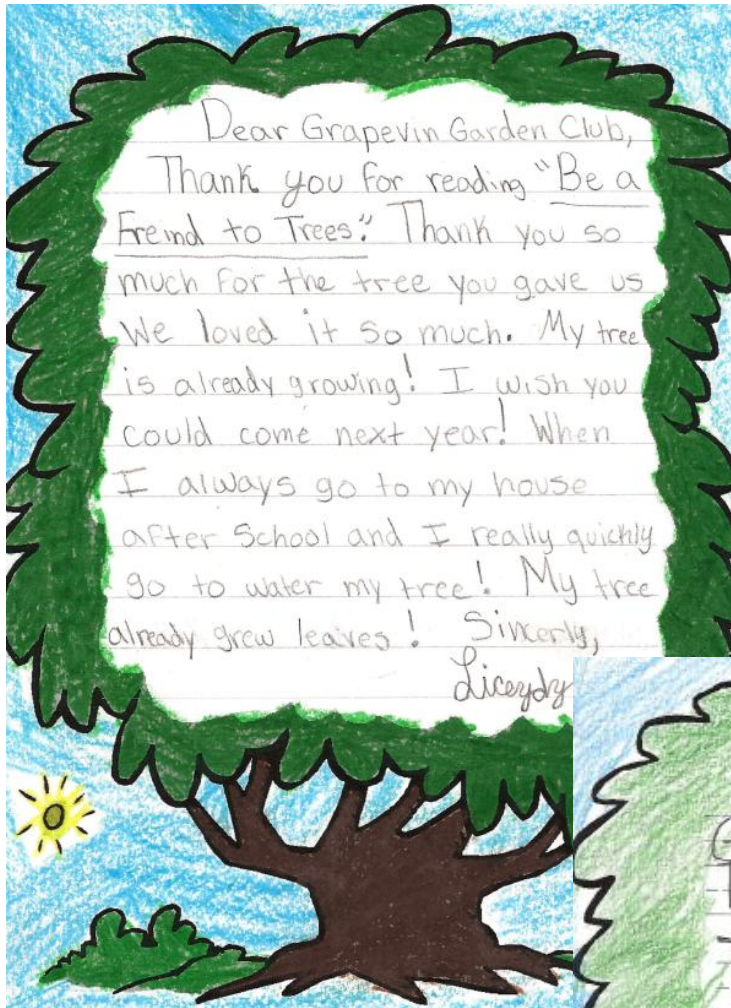 Dear Grapevin Garden Club,
Thank you for reading "Be a
Freind to Trees." Thank you so
much for the tree you gave us
We loved it so much. My tree
is already growing! I wish you
could come next year! When
I always go to my house
after School and I really quickly
go to water my tree! My tree
already grew leaives! Sincerly,
Liceydy